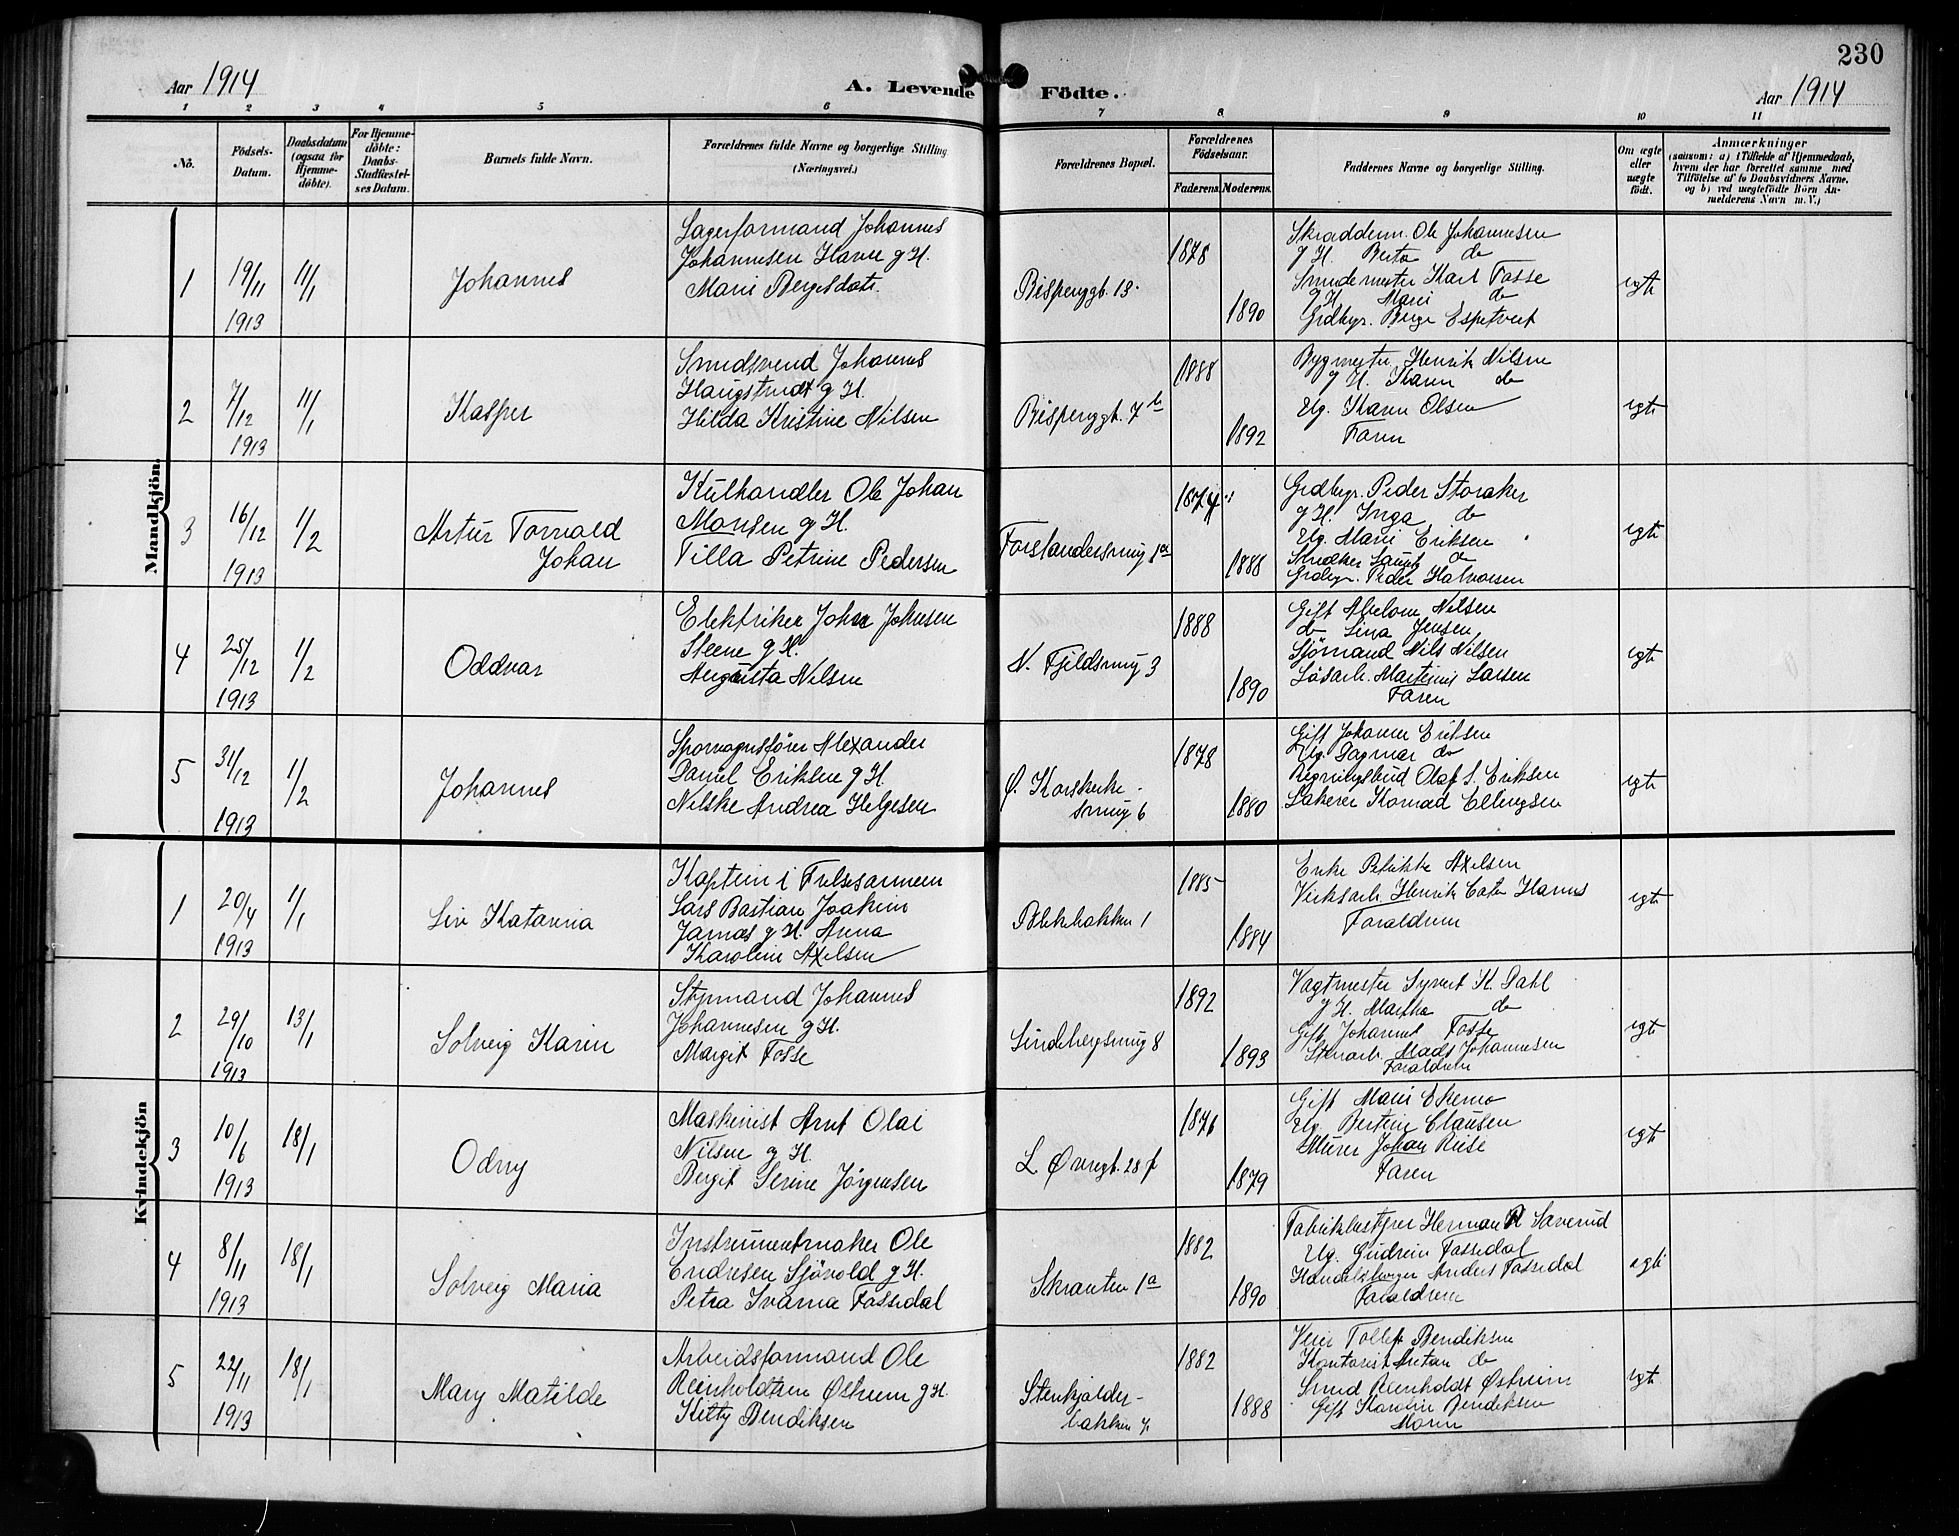 230
Aar 1914
A. Levende Födte.
Aar 1914
1 2 3 4 5 6 7 8 9 10 11
No.
Födsels-
Datum.
Daabsdatum
(ogsaa for
Hjemme-
döbte).
For Hjemme-
döbte:
Daabs-
Stadfæstel-
ses Datum.
Barnets fulde Navn.
Forældrenes fulde Navne og borgerlige Stilling
(Næringsvei.)
Forældrenes Bopæl.
Forældrenes
Födselsaar.
Faderens. Moderens.
Faddernes Navne og borgerlige Stilling.
Om ægte
eller
uægte
födt.
Anmærkninger
(saasom: a) i Tilfælde af Hjemmedaab,
hvem der har forrettet samme med
Tilföielse af to Daabsvidners Navne.
og b) ved uægtefödte Börn An-
melderens Navn m. V.)
Mandkjön.
1
19/11
1913
11/1
Johannes
Lagerformand Johannes
Johannesen Havre g H.
Marie Bergesdatr.
Bispengt. 13.
1878
1890
Skræddерm. Ole Johannesen
g H. Berta do
Smedemester Karl Fosse
g H. Marie do
Grdbgr. Berge Espetveit
egte
2
7/12
1913
11/1
Kasper
Smedsvend Johannes
Haugstvedt g H.
Hilda Kristine Nilsen
Bispengt. 7 b
1888
1892
Bygmester Henrik Nilsen
g H. Karen do
Ug. Karen Olsen
Faren
egte
3
16/12
1913
1/2
Artur Torvald
Johan
Kulhandler Ole Johan
Monsen g H.
Tilla Petrine Pedersen
Forstandersmug 1 a
1874
1888
Grdbgr. Peder Storaker
g H. Inga do
Ug. Marie Eriksen
Snedker Lauritz do
Grdbgr. Peder Halvorsen
egte
4
25/12
1913
1/2
Oddvar
Elektriker John Johnsen
Steene g H.
Augusta Nilsen
N. Fjeldsmug 3
1888
1890
Gift Abelone Nilsen
do Lina Jensen
Sjømand Nils Nilsen
Løsarb. Martinus Larsen
Faren
egte
5
31/12
1913
1/2
Johannes
Sporvognsfører Alexander
Daniel Eriksen g H.
Nilske Andrea Helgesen
Ø. Korskirke-
smug 6
1878
1880
Gift Johanne Eriksen
Ug. Dagmar do
Regningsbud Olaf S. Eriksen
Lakerer Konrad Ellingsen
egte
Kvindekjön
1
20/4
1913
1/1
Liv Katarina
Kaptein i Frelsesarmeen
Lars Bastian Joakim
Jarnæs g H. Anna
Karoline Axelsen
Blekebakken 1
1885
1884
Enke Axelsen
Verksarb. Henrik Hannes
Forældrene
egte
2
29/10
1913
13/1
Solveig Karin
Styrmand Johannes
Johannesen g H.
Margit Fosse
Lindebergsmug 8
1892
1893
Vagtmester Syvert K. Dahl
g H. Martha do
Gift Johanne Fosse
Stenarb. Mads Johannesen
Forældrene
egte
3
10/6
1913
18/1
Odny
Maskinist Arnt Olai
Nilsen g H.
Bergit Serine Jørgensen
L. Øvregt. 28 f
1876
1879
Gift Marie Ekemo
Ug. Bertine Clausen
Murer Johan Riise
Faren
egte
4
8/11
1913
18/1
Solveig Maria
Instrumentmaker Ole
Endresen Sjövold g H.
Petra Ivarna Fossedal
Skranten 1 a
1882
1890
Fabrikbestyrer Herman R Saverud
Ug. Gudrun Fossedal
Handelsborger Anders Fossedal
Forældrene
egte
5
22/11
1913
18/1
Mary Matilde
Arbeidsformand Ole
Reinholdtsen Østrem g H.
Kitty Bendiksen
Stenkjelder-
bakken
1882
1888
Tollef Bendiksen
Kontorist Anton do
Smed Reinholdt Østrem
Gift Karoline Bendiksen
Moren
egte